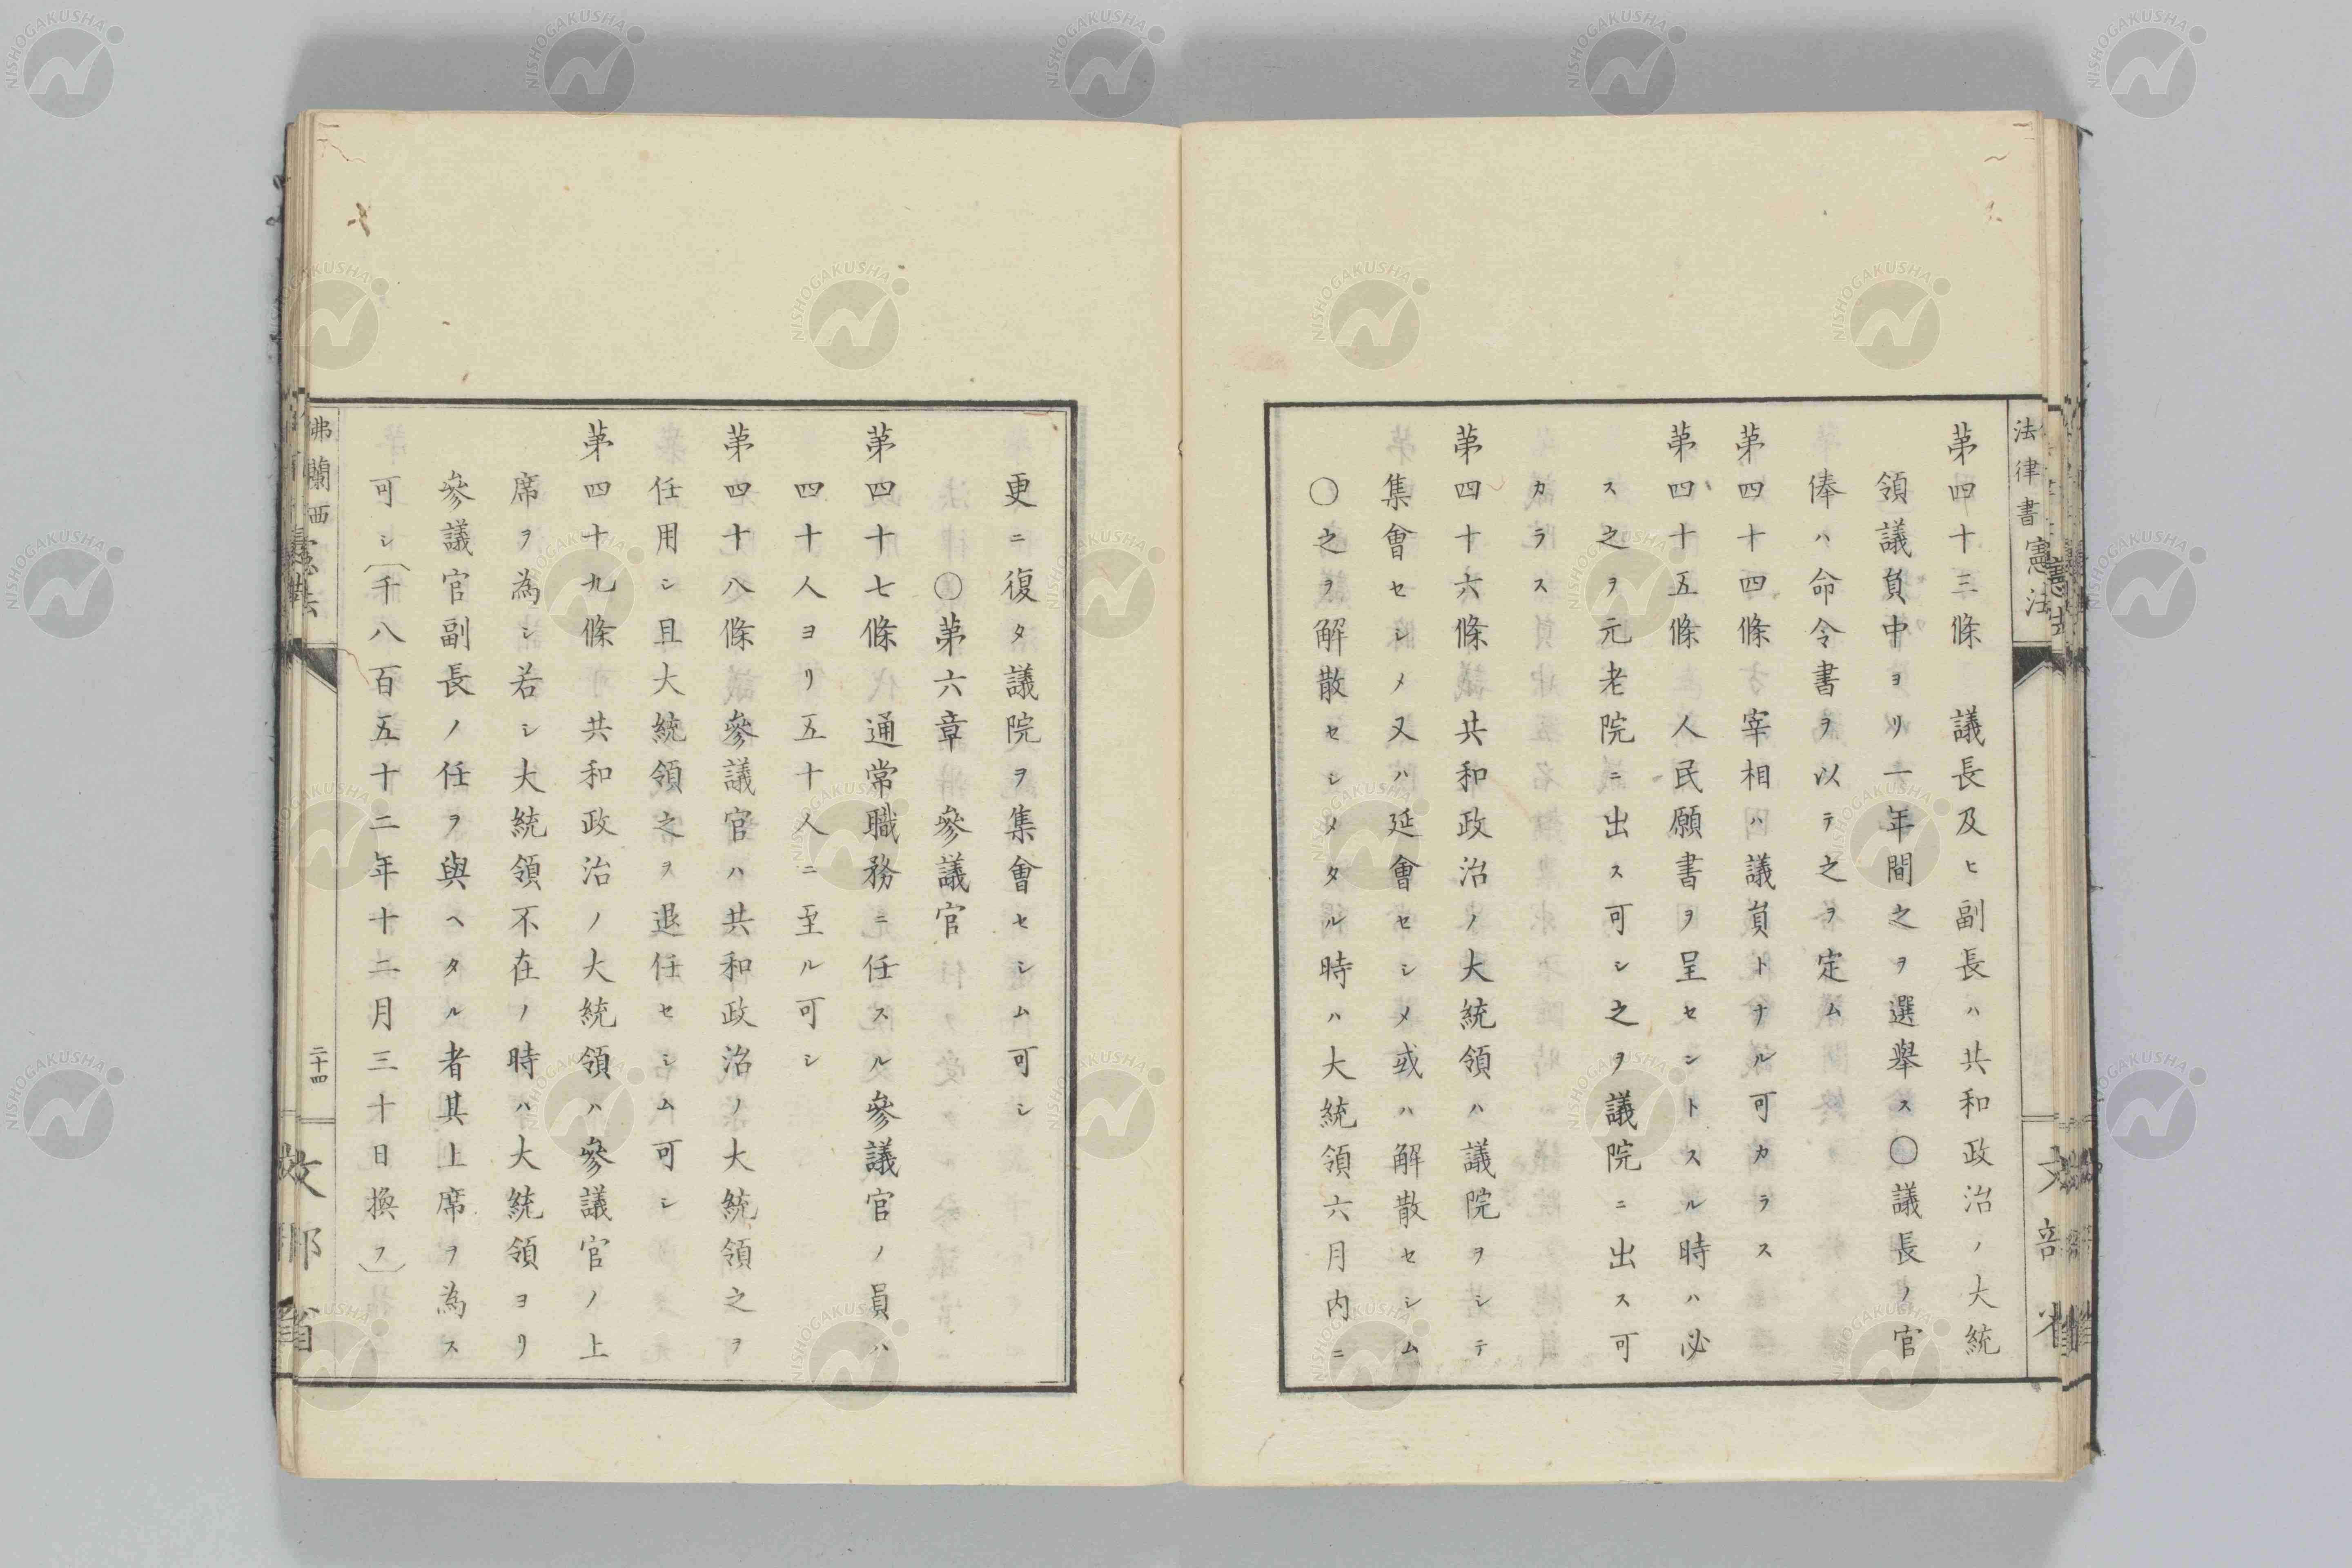 法律書 憲法
第四十三條 議長及ヒ副長ハ共和政治ノ大統
領議負中ヨリ一年間之ヲ選舉ス〇議長ノ官
俸ハ命令書ヲ以テ之ヲ定ム
第四十四條 宰相ハ議負トナル可カラス
第四十五條 人民願書ヲ呈セントスル時ハ必
ス之ヲ元老院ニ出ス可シ之ヲ議院ニ出ス可
カラス
第四十六條 共和政治ノ大統領ハ議院ヲシテ
集會セシメ又ハ延會セシメ或ハ解散セシム
〇之ヲ解散セシメタル時ハ大統領六月内ニ
更ニ復タ議院ヲ集會セシム可シ
〇第六章 參議官
第四十七條 通常職務ニ任スル參議官ノ員ハ
四十人ヨリ五十人ニ至ル可シ
第四十八條 參議官ハ共和政治ノ大統領之ヲ
任用シ且大統領之ヲ退任セシム可シ
第四十九條 共和政治ノ大統領ハ參議官ノ上
席ヲ為シ若シ大統領不在ノ時ハ大統領ヨリ
參議官副長ノ任ヲ與ヘタル者其上席ヲ為ス
可シ〔千八百五十二年十二月三十日換フ〕
佛蘭西 憲法
二十四
NISHOGAKUSHA